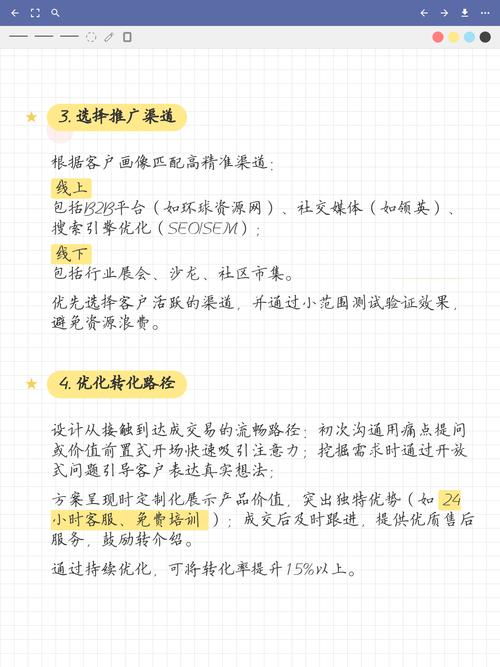 3. 选择推广渠道
根据客户画像匹配高精准渠道：
线上
包括B2B平台（如环球资源网）、社交媒体（如领英）、
搜索引擎优化（SEO|SEM）；
线下
包括行业展会、沙龙、社区市集。
优先选择客户活跃的渠道，并通过小范围测试验证效果，
避免资源浪费。
4. 优化转化路径
设计从接触到达成交易的流畅路径：初次沟通用痛点提问
或价值前置式开场快速吸引注意力；挖掘需求时通过开放
式问题引导客户表达真实想法；
方案呈现时定制化展示产品价值，突出独特优势（如 24
小时客服、免费培训 ）；成交后及时跟进，提供优质售后
服务，鼓励转介绍。
通过持续优化，可将转化率提升15%以上。